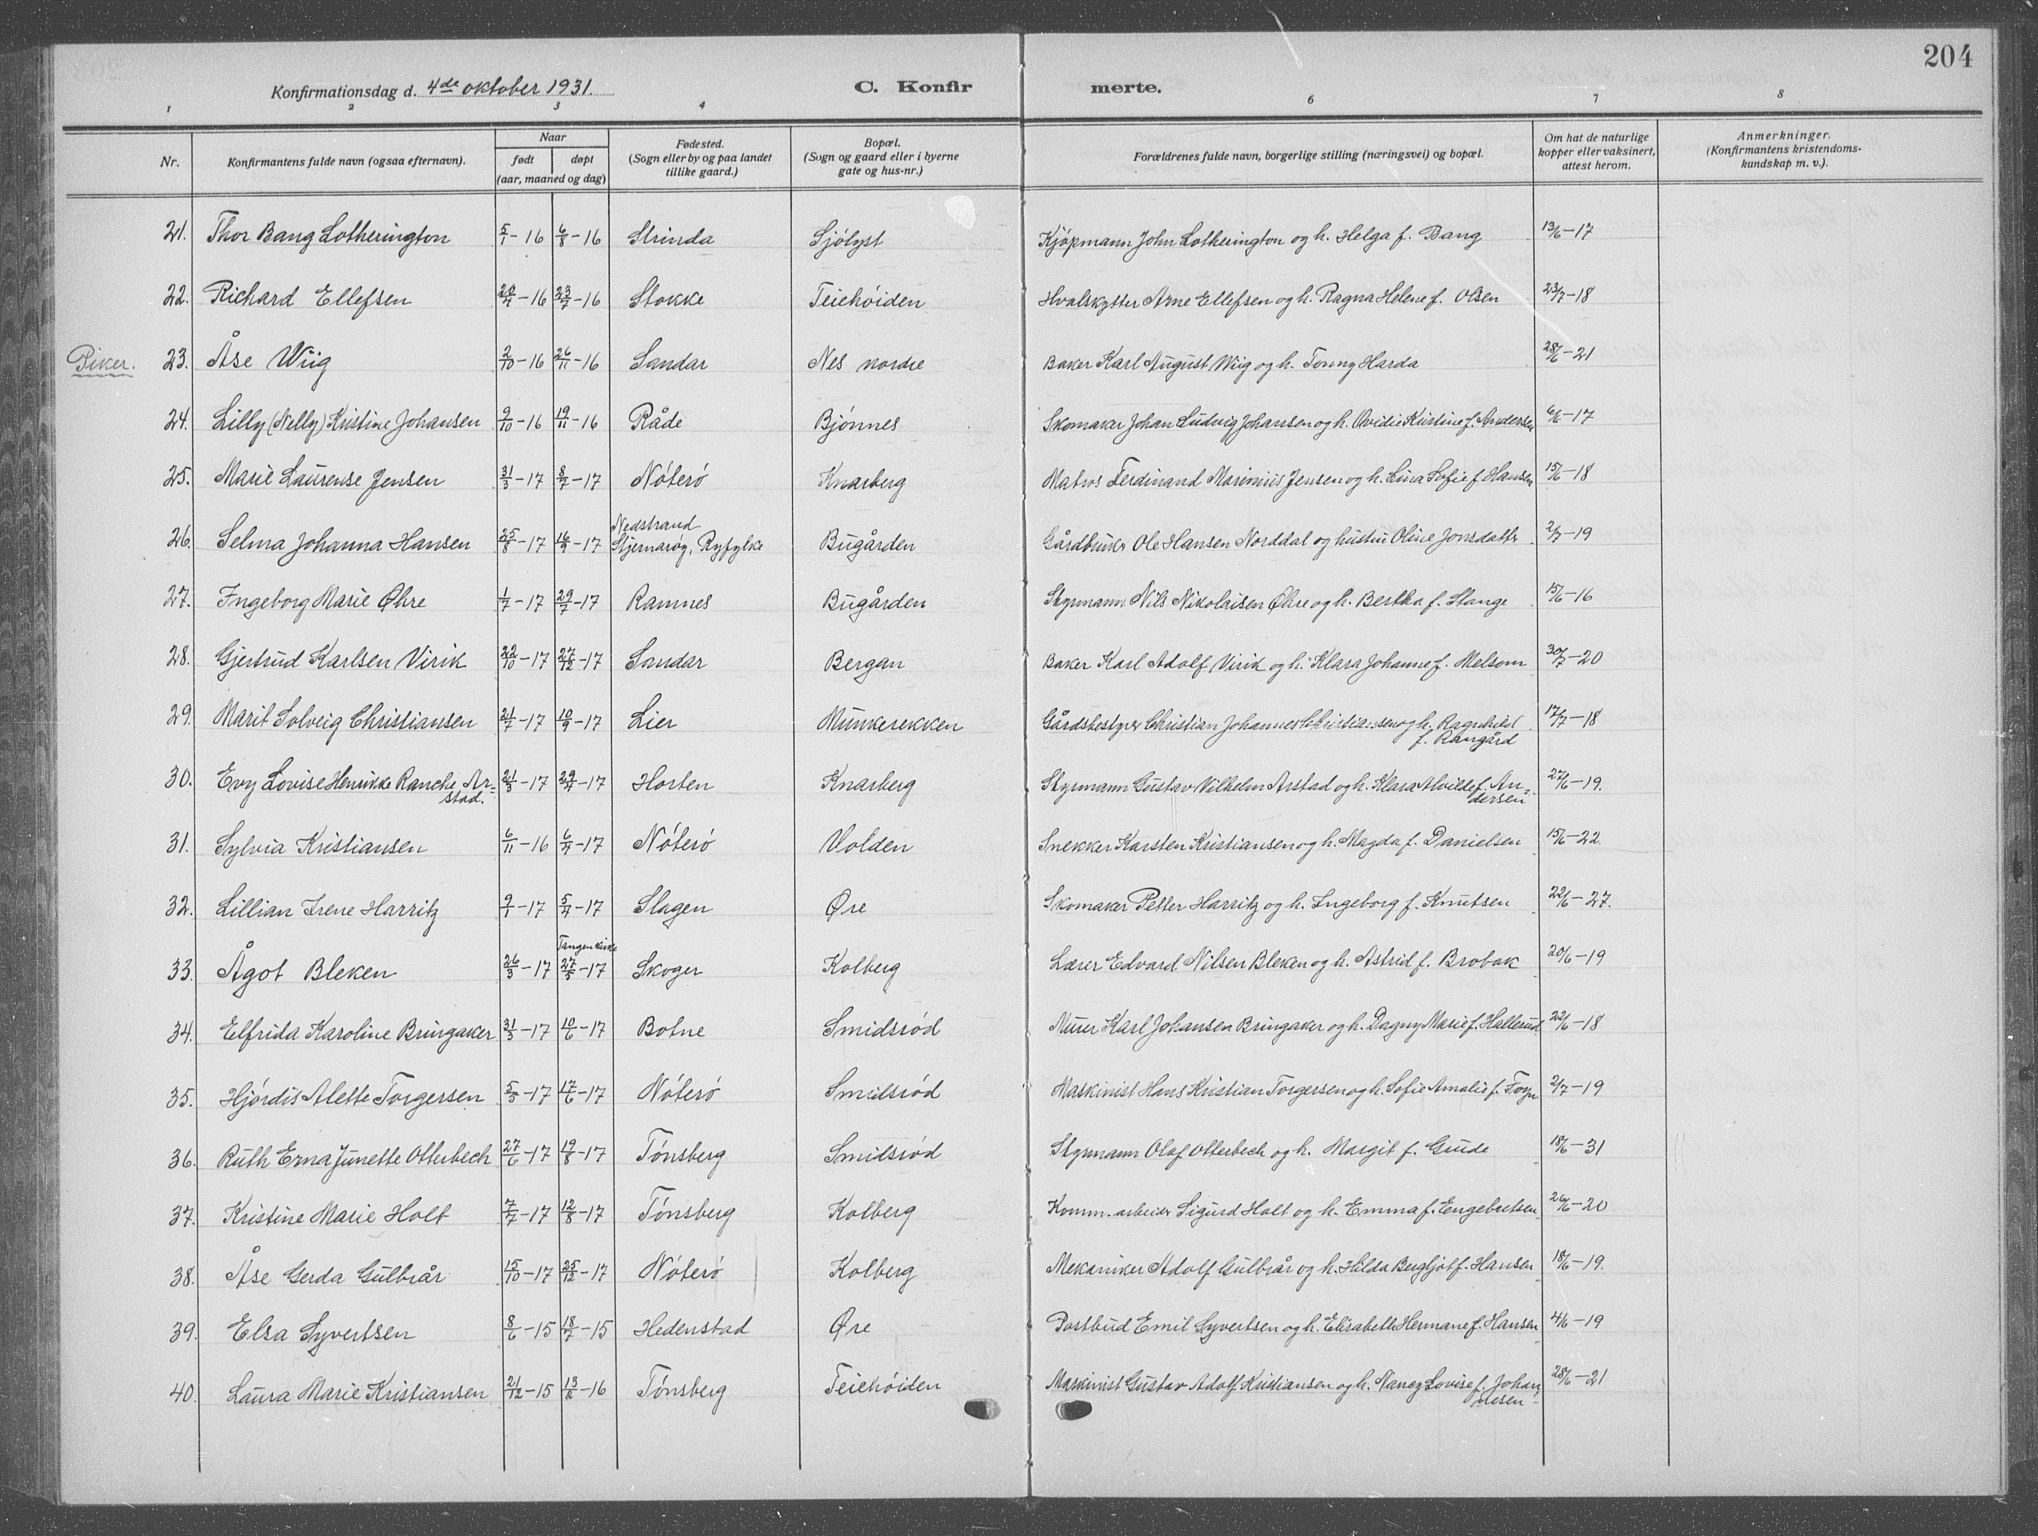 204
Konfirmationsdag d. 4de oktober 1931. C. Konfir merte.
1 2 3 4 6 7 8
Nr. Konfirmantens fulde navn (ogsaa efternavn). Naar født døpt (aar, maaned og dag) Fødested. (Sogn eller by og paa landet tillike gaard.) Bopæl. (Sogn og gaard eller i byerne gate og hus-nr.) Forældrenes fulde navn, borgerlige stilling (næringsvei) og bopæl. Om hat de naturlige kopper eller vaksinert, attest herom. Anmerkninger. (Konfirmantens kristendoms-kundskap m. v.).
21. Thor Bang Lotherington 5/1-16 6/8-16 Strinda Sjölyst Kjøpmann John Lotherington og h. Helga f. Bang 13/6-17
22. Richard Ellefsen 20/4-16 23/7-16 Stokke Teiehöiden Hvalskytter Arne Ellefsen og h. Ragna Helene f. Olsen 23/7-18
Piker. 23. Åse Wiig 2/10-16 26/11-16 Sandar Nes nordre Baker Karl August Wiig og h. Tonny Harda 28/6-21
24. Lilly (Nelly) Kristine Johansen 9/10-16 19/11-16 Råde Bjönnes Skomaker Johan Ludvig Johansen og h. Ovidie Kristine f. Andersen 6/6-17
25. Marie Laurense Jensen 31/3-17 8/7-17 Nöterö Knarberg Matros Ferdinand Marinius Jensen og h. Lina Sofie f. Hansen 15/6-18
26. Selma Johanna Hansen 25/8-17 16/9-17 Nedstrand Stjernaröy, Ryfylke Bugården Gårdbruker Ole Hansen Norddal og hustru Oline Jonsdatter 2/7-19
27. Ingeborg Marie Øhre 1/7-17 29/7-17 Ramnes Bugården Styrmann Nils Nikolaisen Øhre og h. Bertha f. Stange 15/6-16
28. Gjertrud Karlsen Virik 22/10-17 27/12-17 Sandar Bergan Baker Karl Adolf Virik og h. Klara Johanne f. Melsom 30/7-20
29. Marit Solveig Christiansen 21/7-17 10/9-17 Lier Munkerekken Gårdsbestyrer Christian Johannes Christiansen og h. Ragnhild f. Rangård 17/7-18
30. Evy Lovise Henrikke Ranche Arstad. 21/3-17 29/4-17 Horten Knarberg Styrmann Gustav Vilhelm Arstad og h. Klara Alvilde f. Andersen 27/6-19.
31. Sylvia Kristiansen 6/11-16 6/4-17 Nöterö Volden Snekker Karsten Kristiansen og h. Magda f. Danielsen 15/6-22
32. Lillian Irene Harritz 9/1-17 5/4-17 Slagen Øre Skomaker Petter Harritz og h. Ingeborg f. Knutsen 22/6-27.
33. Ågot Bleken 26/3-17 Tangen kirke 27/5-17 Skoger Kolberg Lærer Edvard Nilsen Bleken og h. Astrid f. Brobak 20/6-19
34. Elfrida Karoline Bringaker 31/3-17 10/6-17 Botne Smidsröd Murer Karl Johansen Bringaker og h. Dagny Marie f. Hallerud 22/6-18
35. Hjördis Alette Torgersen 5/3-17 17/6-17 Nöterö Smidsröd Maskinist Hans Kristian Torgersen og h. Sofie Amalie f. Foyn 2/7-19
36. Ruth Erna Junette Otterbech 27/6-17 19/8-17 Tønsberg Smidsröd Styrmann Olaf Otterbech og h. Margit f. Gude 18/6-31
37. Kristine Marie Holt 7/7-17 12/8-17 Tønsberg Kolberg Komm. arbeider Sigurd Holt og h. Emma f. Engebretsen 26/6-20
38. Åse Gerda Gulbrår 15/10-17 25/12-17 Nöterö Kolberg Mekaniker Adolf Gulbrår og h. Hilda Bergljot f. Hansen 18/6-19.
39. Elsa Syvertsen 8/6-15 18/7-15 Hedenstad Øre Postbud Emil Syvertsen og h. Elisabeth Hermane f. Hansen 4/6-19
40. Laura Marie Kristiansen 21/12-15 13/2-16 Tønsberg Teiehöiden Maskinist Gustav Adolf Kristiansen og h. Nancy Lovise f. Johannesen 28/6-21